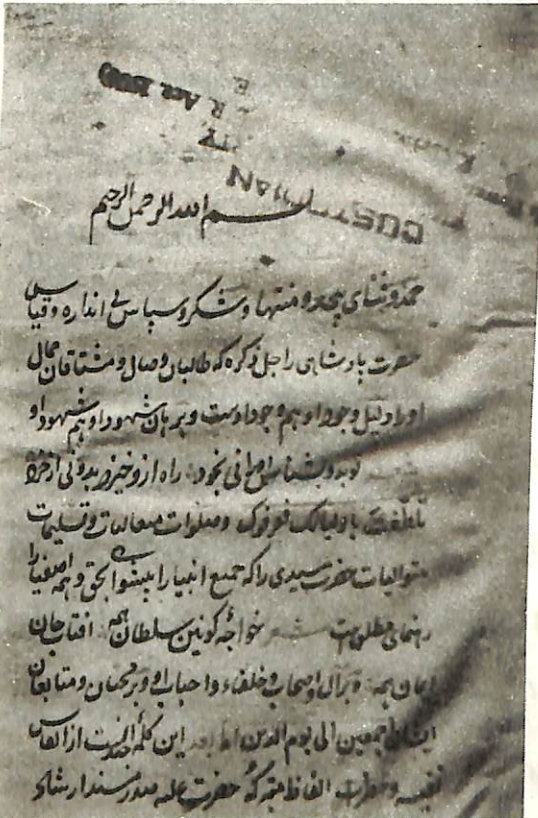 CUSTODIAN
R. Act. 
بسم الله الرحمن الرحيم
حمد و ثنای بیحد و منتها و شکر و سپاس بی اندازه و قیاس
حضرت پادشاهی را جل ذکره که طالبان وصال و مشتاقان جمال
او را دلیل وجود او هم وجود اوست و برهان شهود او هم شهود او
تو بدو بشناس او را نی بخود راه ازو خیزد بدو نی از خرد
و صلوات و تسلیمات
متوالیات حضرت سیدی را که جمیع انبیا را پیشوا بحق و همه اصفیا را
رهنمای مطلق است شعر خواجه کونین سلطان همه افتاب جان
ایمان همه و بر آل و اصحاب و خلفاء و احباب او و بر محبان و متابعان
ایشان اجمعین الی یوم الدین اما بعد این کلمه چند است از انفاس
نفیسه و الفاظ متبرکه حضرت مسند ارشاد